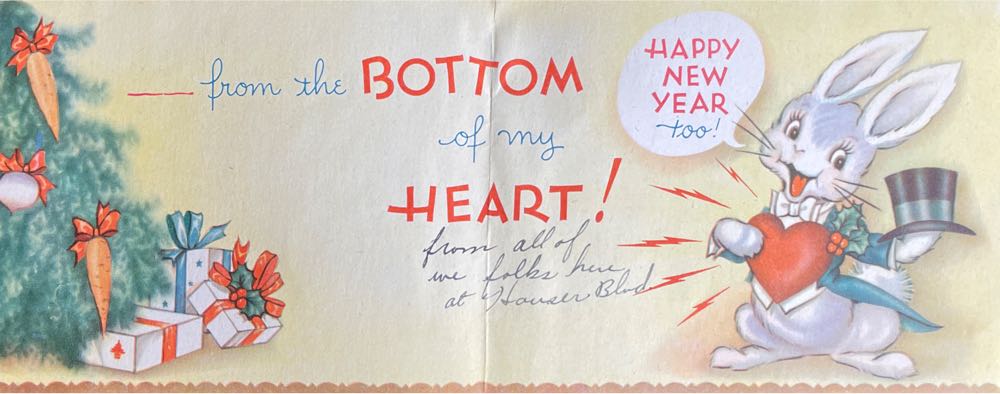 — from the BOTTOM
of my
HEART!
from all of
we folks here
at Hauser Blvd
HAPPY
NEW
YEAR
too!